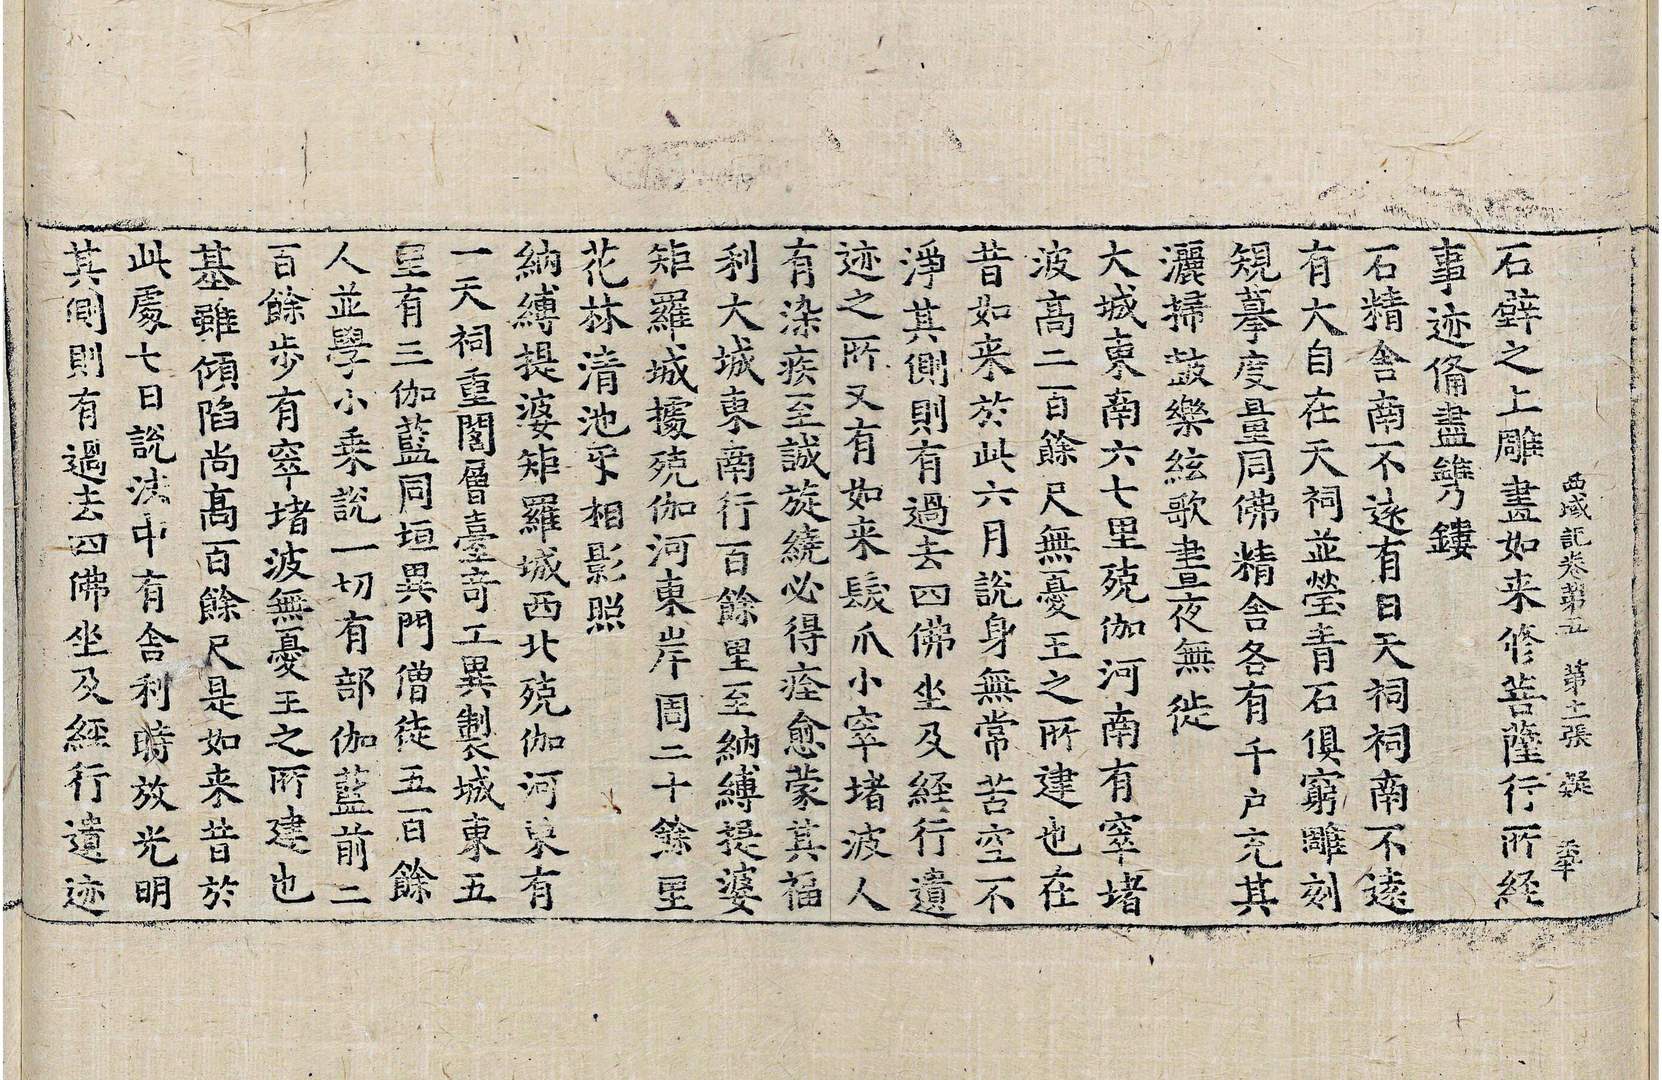 西域記卷第五　第十二張　凝
石壁之上雕畫如来修菩薩行所経
事迹俻盡鐫鏤
石精舍南不遠有日天祠祠南不遠
有大自在天祠並瑩青石俱窮雕刻
䂓摹度量同佛精舍各有千户充其
灑掃鼓樂絃歌晝夜無徙
大城東南六七里殑伽河南有窣堵
波髙二百餘尺無憂王之所建也在
昔如来於此六月說身無常苦空不
淨其側則有過去四佛坐及経行遺
迹之所又有如来髮爪小窣堵波人
有染疾至誠旋繞必得痊愈蒙其福
利大城東南行百餘里至納縛提婆
矩羅城據殑伽河東岸周二十餘里
花林清池㸦相影照
納縛提婆矩羅城西北殑伽河東有
一天祠重閣層臺奇工異製城東五
里有三伽藍同垣異門僧徒五百餘
人並學小乘說一切有部伽藍前二
百餘步有窣堵波無憂王之所建也
基雖傾陷尚髙百餘尺是如来昔於
此處七日說法中有舍利時放光明
其側則有過去四佛坐及經行遺迹